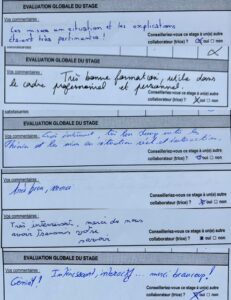 EVALUATION GLOBALE DU STAGE
Vos commentaires :
Les mises en situation et les explications
étaient très pertinentes !
Conseilleriez-vous ce stage à un(e) autre
collaborateur (trice) ? oui □ non
EVALUATION GLOBALE DU STAGE
Vos commentaires :
Très bonne formation, utile dans
le cadre professionnel et personnel.
Conseilleriez-vous ce stage à un(e) autre
collaborateur (trice) ? oui □ non
EVALUATION GLOBALE DU STAGE
Vos commentaires :
très bon entre la
théorie et la mise en
Conseilleriez-vous ce stage à un(e) autre
collaborateur (trice) ? oui □ non
EVALUATION GLOBALE DU STAGE
Vos commentaires :
Très bien, merci
Conseilleriez-vous ce stage à un(e) autre
collaborateur (trice) ? oui □ non
Vos commentaires :
Très intéressant, merci de nous
avoir transmis votre
savoir
Conseilleriez-vous ce stage à un(e) autre
collaborateur (trice) ? oui □ non
EVALUATION GLOBALE DU STAGE
Vos commentaires :
Intéressant, interactif... merci beaucoup !
Génial !
Conseilleriez-vous ce stage à un(e) autre
collaborateur (trice) ? oui □ non